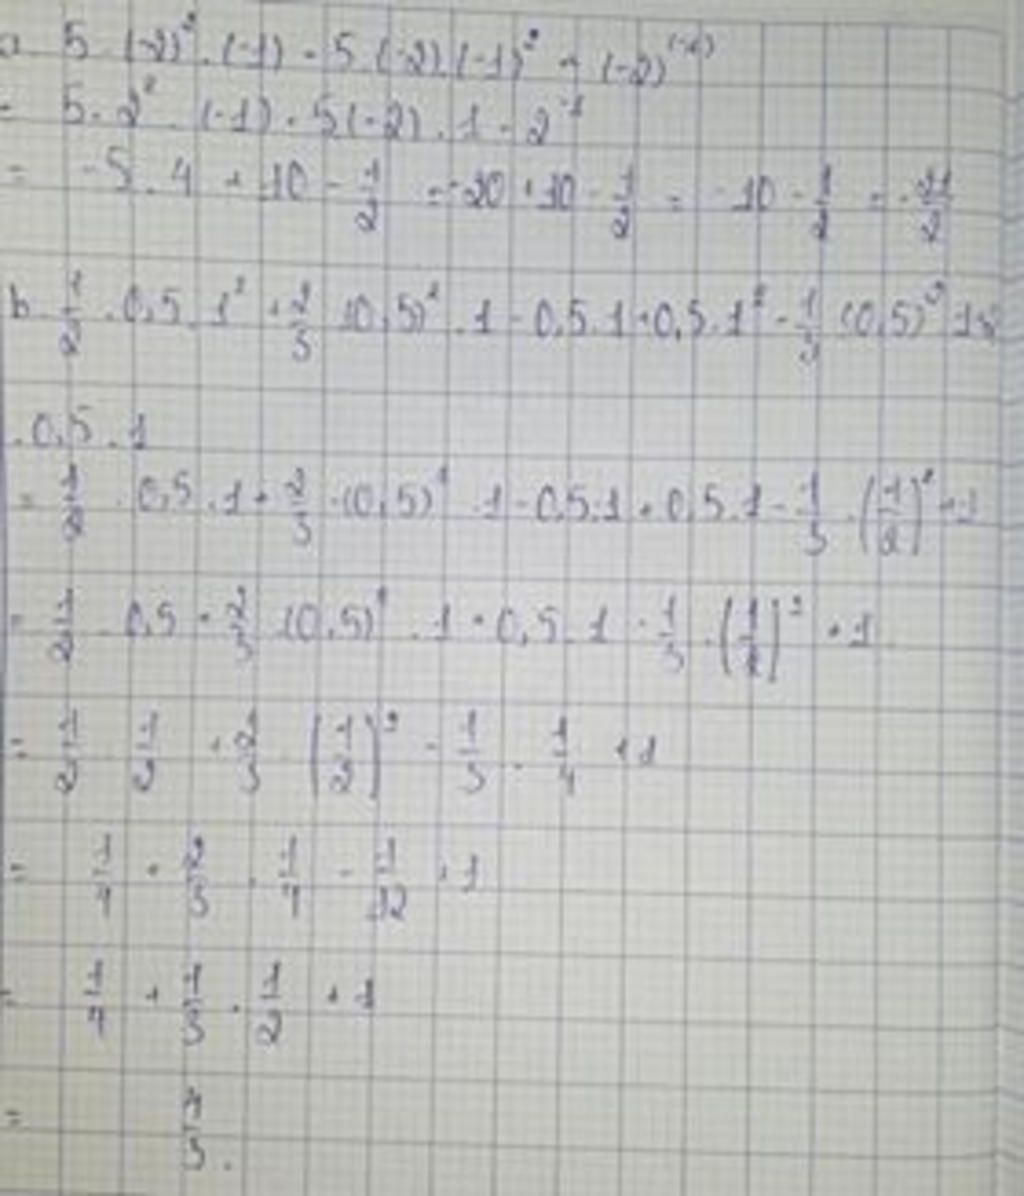 a 5 . (-2)² . (-1) - 5 (-2) . (-1)² + (-2)⁽⁻²⁾
= 5 . 2² . (-1) - 5 (-2) . 1 - 2⁻¹
= -5 . 4 + 10 - 1/2 = -20 + 10 - 1/2 = -10 - 1/2 = -21/2
b 1/2 . 0,5 . 1² + 2/3 (0,5)² . 1 - 0,5 . 1 + 0,5 . 1² - 1/3 (0,5)² 1
. 0,5 . 1
= 1/2 . 0,5 . 1 + 2/3 . (0,5)² . 1 - 0,5 . 1 + 0,5 . 1 - 1/3 . (1/2)² + 1
= 1/2 . 0,5 + 2/3 (0,5)² . 1 + 0,5 . 1 - 1/3 . (1/2)² + 1
= 1/2 1/2 + 2/3 (1/2)² - 1/3 . 1/4 + 1
= 1/4 + 2/3 . 1/4 - 1/12 + 1
= 1/4 + 1/3 . 1/2 + 1
= 4/3 .